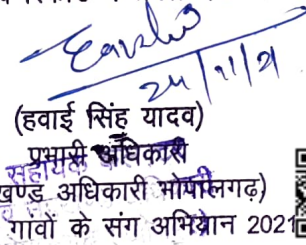 24/11/21
(हवाई सिंह यादव)
प्रभारी अधिकारी
सहायक
खण्ड अधिकारी भोपालगढ़)
गावों के संग अभियान 2021